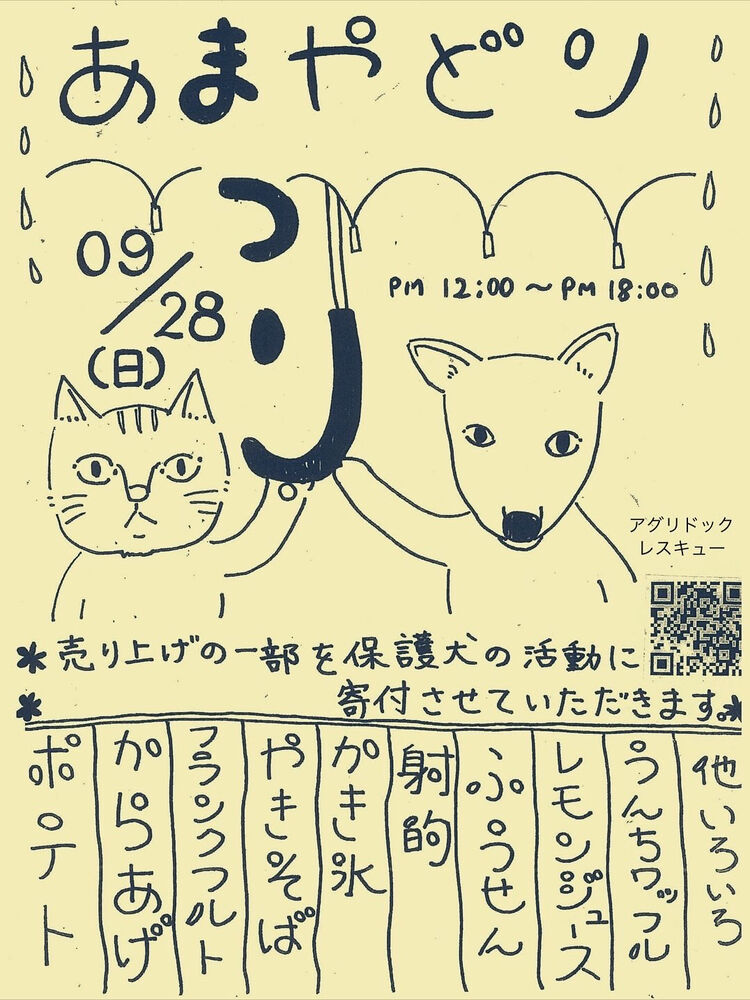 あまやどり
つり
09/28
(日)
PM 12:00〜PM 18:00
アグリドック
レスキュー
*売り上げの一部を保護犬の活動に
*寄付させていただきます。*
ポテト
からあげ
フランクフルト
やきそば
かき氷
射的
ふうせん
レモンジュース
うんちワッフル
他いろいろ